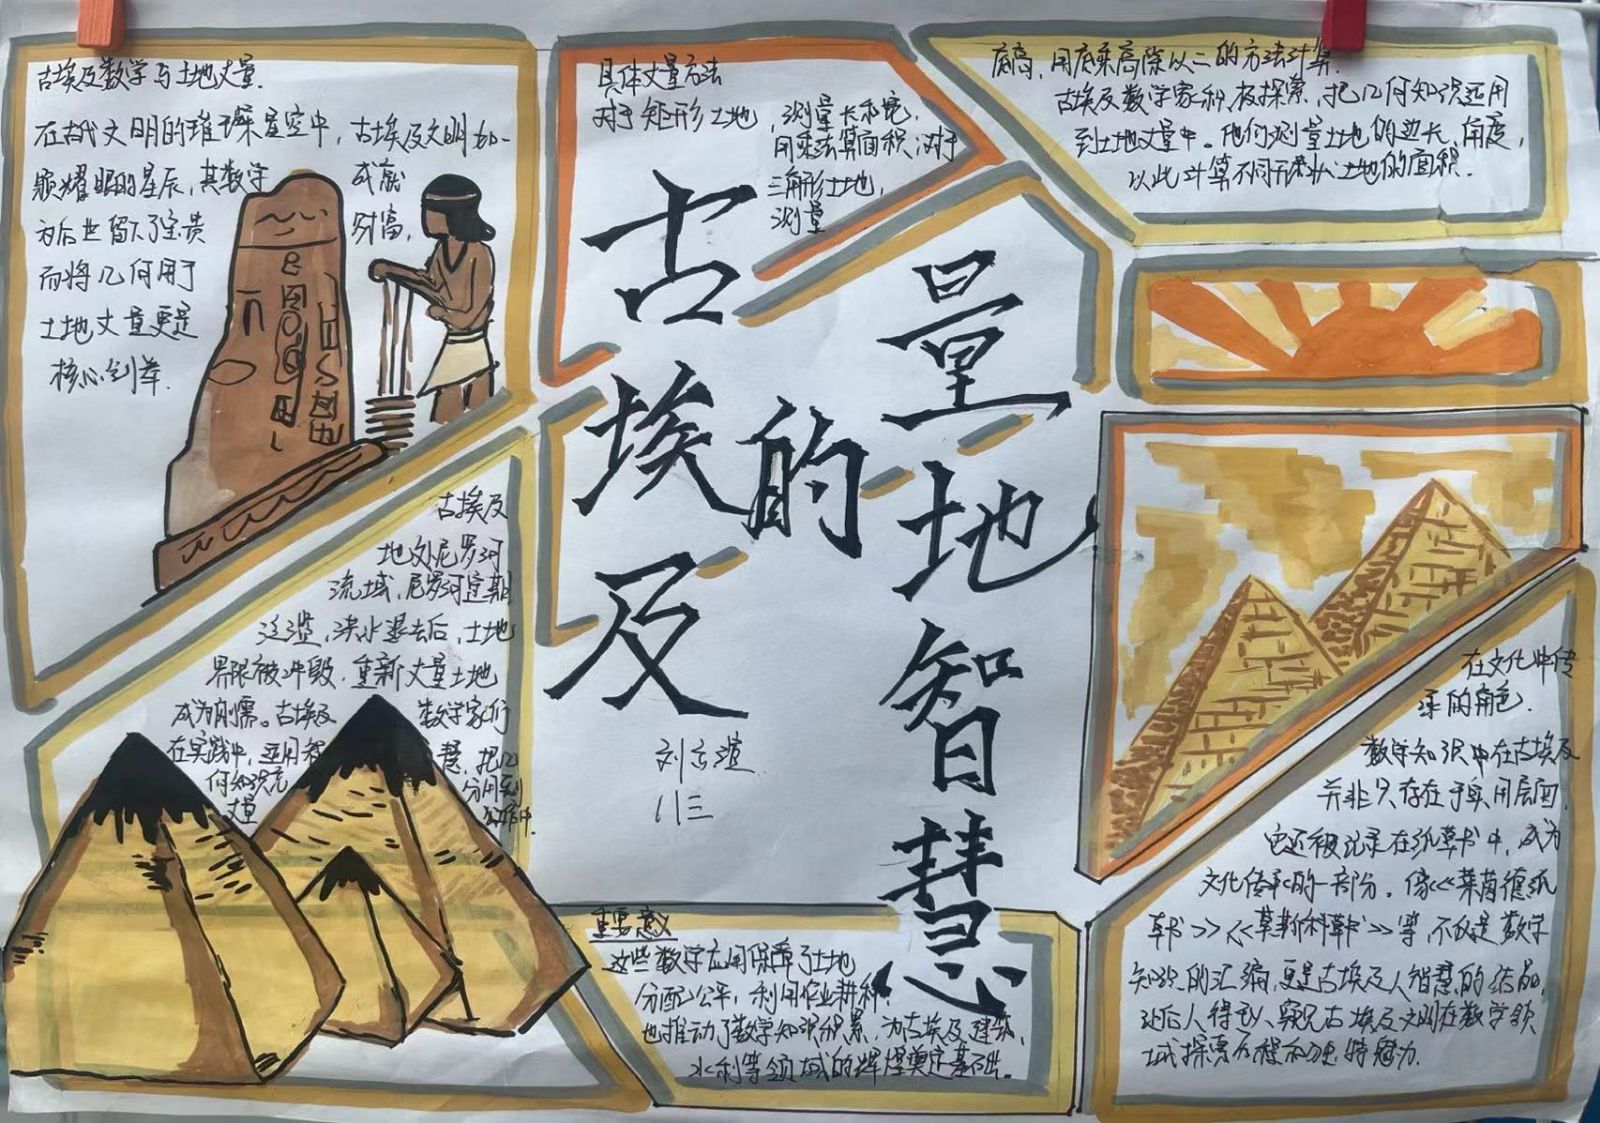 古埃及数学与土地丈量.
在古代文明的璀璨星空中，古埃及文明如一
颗耀眼的星辰，其数学成就
为后世留下了宝贵财富，
而将几何用于
土地丈量更是
核心创举.
古埃及
地处尼罗河
流域，尼罗河定期
泛滥，洪水退去后，土地
界限被冲毁，重新丈量土地
成为刚需。古埃及数学家们
在实践中，运用智慧，把几
何知识充分用到
丈量
具体丈量方法
对于矩形土地，测量长和宽，
用乘法算面积；对于
三角形土地，
测量
底高，用底乘高除以二的方法计算.
古埃及数学家积极探索，把几何知识运用
到土地丈量中。他们测量土地的边长、角度，
以此计算不同形状土地的面积.
古埃及
的
量地智慧
八三
重要意义
这些数学应用保障了土地
分配公平，利用作业耕种，
也推动了数学知识积累，为古埃及建筑、
水利等领域的辉煌奠定基础。
在文化中传
承的角色.
数学知识中在古埃及
并非只存在于实用层面，
它还被记录在纸草书中，成为
文化传承的一部分。像《莱茵德纸
草书》《莫斯科草书》等，不仅是数学
知识的汇编，更是古埃及人智慧的结晶，
让后人得以窥见古埃及文明在数学领
域探索历程和独特魅力.